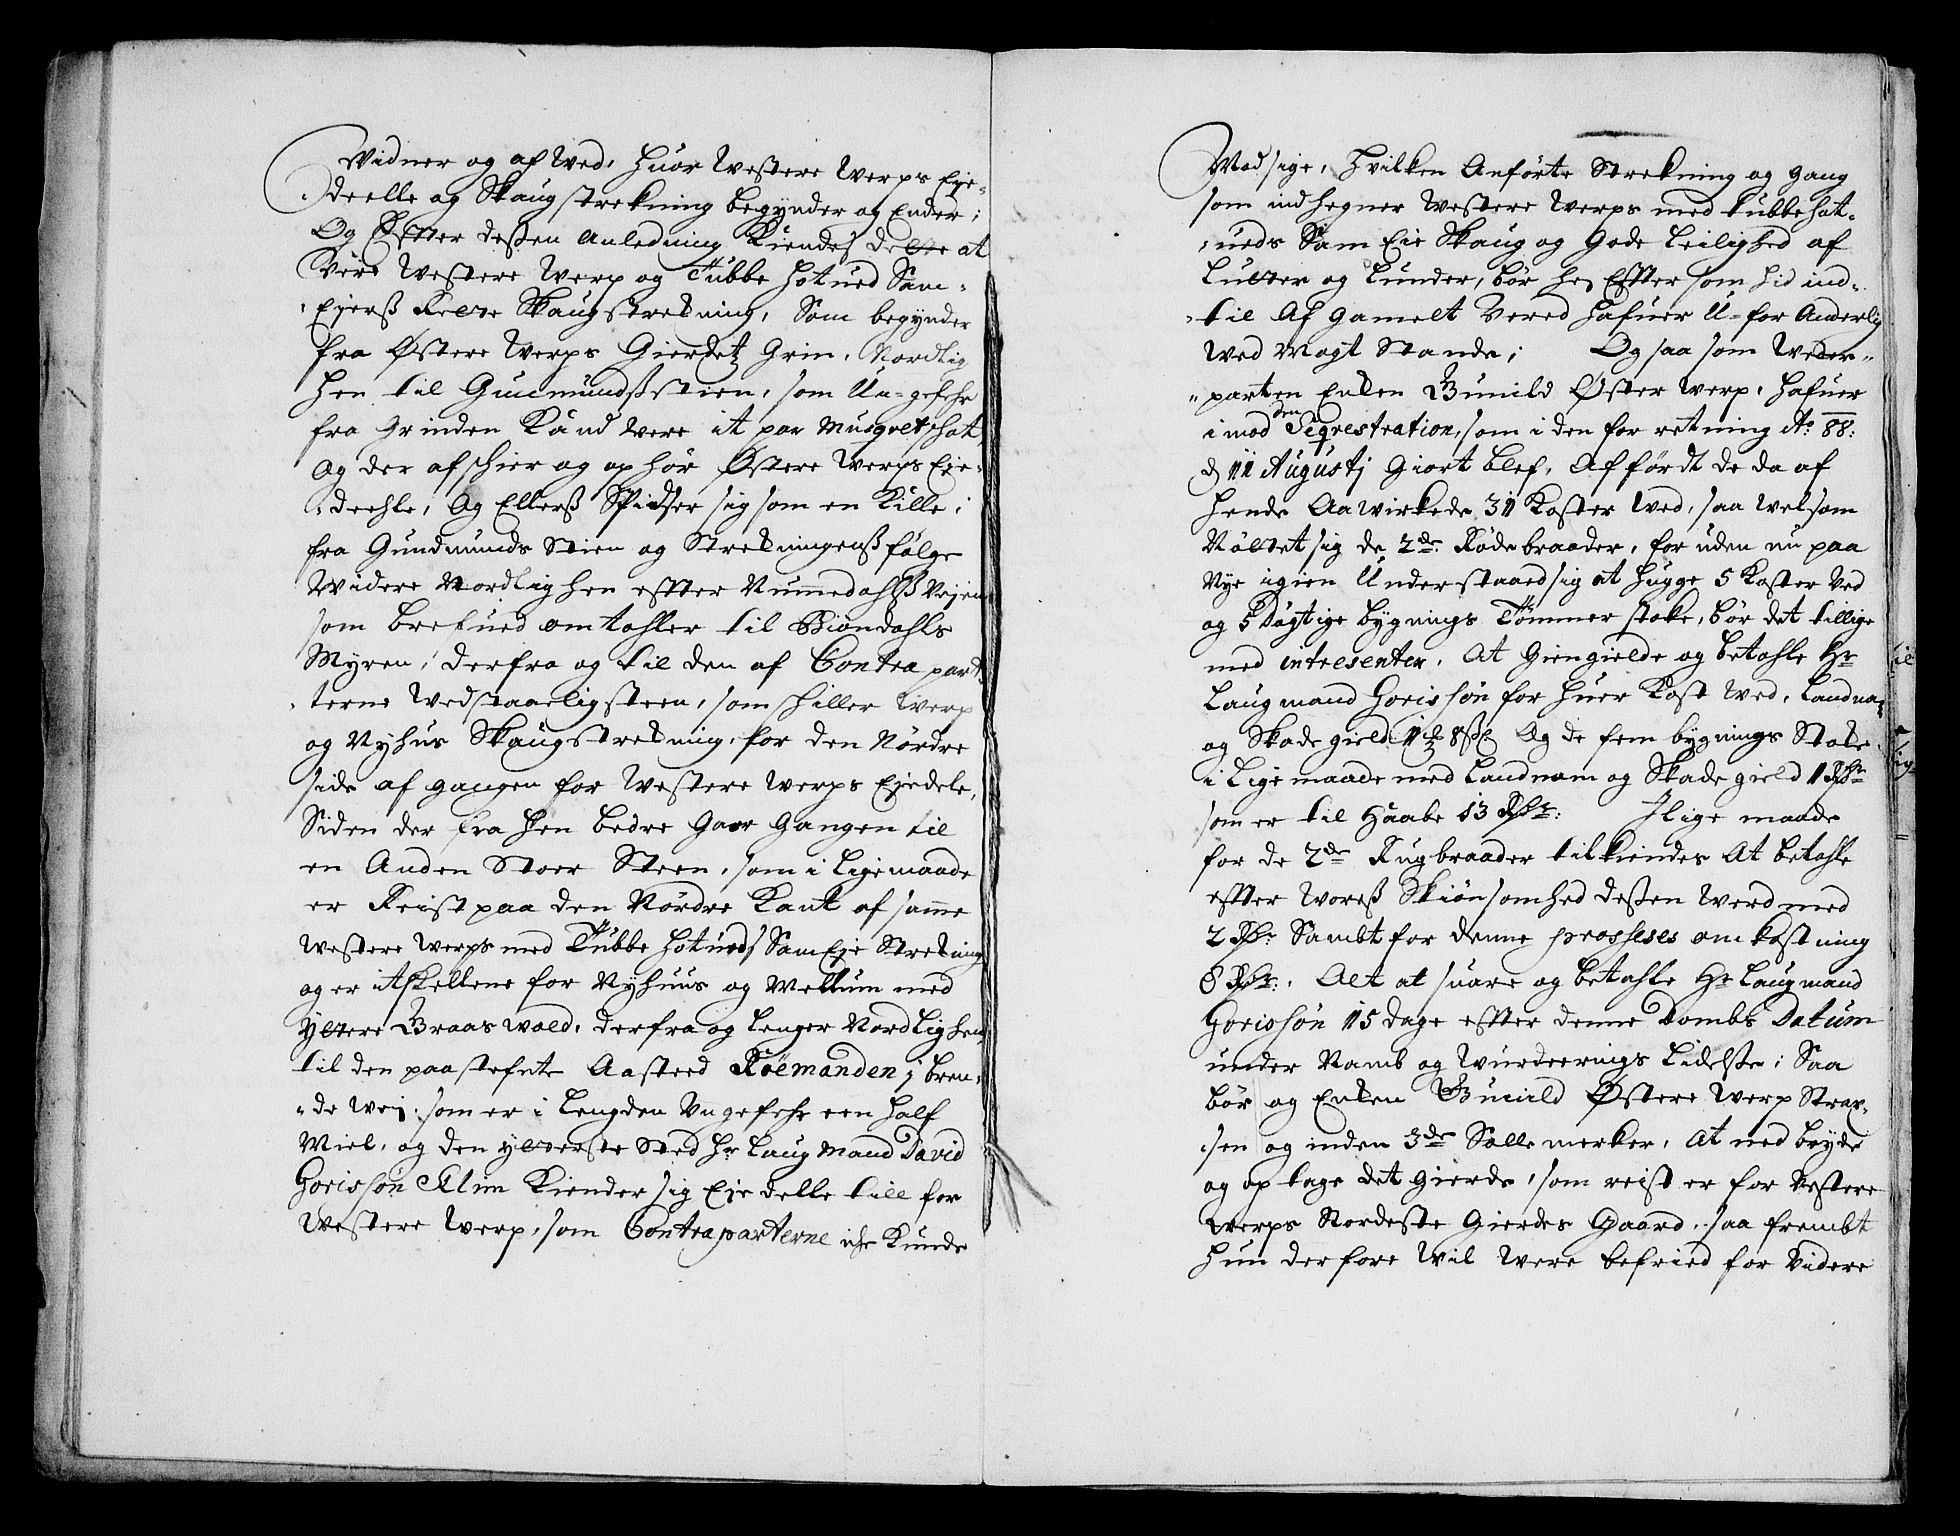 Widner og af Wed, huor Westere Werps Eje-
deelle og Skaugstrekning begynder og Ender;
Og Effter deßen Anledning Kiendes dette at
Vere Westere Werp og Tubbe hotued Sam-
Ejerß Rette Skaugstrekning, Som begynder
fra Østere Werps Gierdetz Grin, Nordlig
hen til Gunmundßstien, som Un-gefehr
fra Grinden Kand Vere it par Musqvetschot,
Og der afschier og ophör Østere Werps Eje-
deehle, Og Ellerß Spidser sig som en Kille;
fra Gundmunds Stien og Strekningenß følge
Widere Nordlig hen effter Nummedahlß Vejen
som brefued omtahler til Biöndahls
Myren, derfra og til den af Contrapar-
terne Wedstaaelig steen, som schiller Werp
og Nyhus Skaugstrekning, for den Nördre
side af gangen for Westere Werps Ejedele,
Siden der fra hen bedre Gaar Gangen til
en Anden Stoer Steen, som i Ligemaade
er Reist paa den Nördre Kant af samme
Westere Werps med Tubbe hotueds SamEje Strekning
og er itskellene for Nyhuus og Mellum med
Yttere Braaswold, derfra og lenger Nordlig hen
til den paastefnte Aasteed Röemanden j bren-
de Wej, som er i Lengden Ungefehr een half
Miel, og den ytterste Sted Hr Laugmand David
Gorissön Klim Kiender sig Eje delle till for
Westere Werp, som Contraparterne iche Kunde
Modsige, Hvilken Anförte Strekning og gang
som indhegner Westere Werps med tubbehot-
ueds Sam Eie Skaug og Gode Leilighed af
Lutter og Lunder, bör her Effter som hid ind-
til Af gamelt Vered hafuer U-foranderlig
Wed Magt Stande; Og saa som Weder-
parten Enken Gunild Øster Werp, hafuer
imod den Seqrestration, som i den forretning Ao 88:
d 11 Augustj Giort blef, Afförtt de da af
hende Aawirkede 31 Koster Wed, saa velsom
Nöttet sig de 2de Rödebraader, for uden nu paa
Nye igien Understaaed sig at hugge 5 Koster Ved
og 5 Dögtige bygnings Tömmer stoke, bör det tillige
med intresenter, At Giengielde og betahle Hr
Laugmand Gorissön for huer Kost Wed, Landna
og Skadegield og de fem bygnings Stoke
i Lige maade med Landnam og Skadegield 1 Rdr
som er til Haabe 13 Rdr: Jlige maade
for de 2de Rugbraader tilkiendes At betahle
effter Woreß Skiönsomhed deßen Werd med
2 Rdr: Sambt for denne prosseses omkostning
8 Rdr:. Alt at suare og betahle Hr Laugmand
Gorissön 15 dage effter denne Dombs Datum
under Namb og Wurdeerings Lidelße; Saa
bör og Enken Gunild Østere Werp Strax-
sen og inden 3de Solle merker, At nedbryde
og optage det Gierde, som reist er for Vestere
Werps Nordeste Gierdes Gaard, saa frembt
hun derfore Wil Were befried for Videre